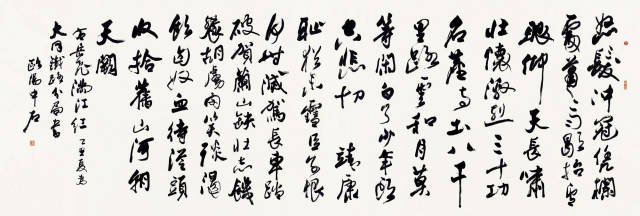 怒髮沖冠凭欄
處蕭蕭雨歇抬望
眼仰天長嘯
壯懷激烈三十功
名塵与土八千
里路雲和月莫
等閑白了少年頭
空悲切 靖康
恥猶未雪臣子恨
何時滅駕長車踏
破賀蘭山缺壯志饑
餐胡虜肉笑談渴
飲匈奴血待從頭
收拾舊山河朝
天闕
右岳飛滿江紅 夏為
大同鐵路分局書
歐陽中石